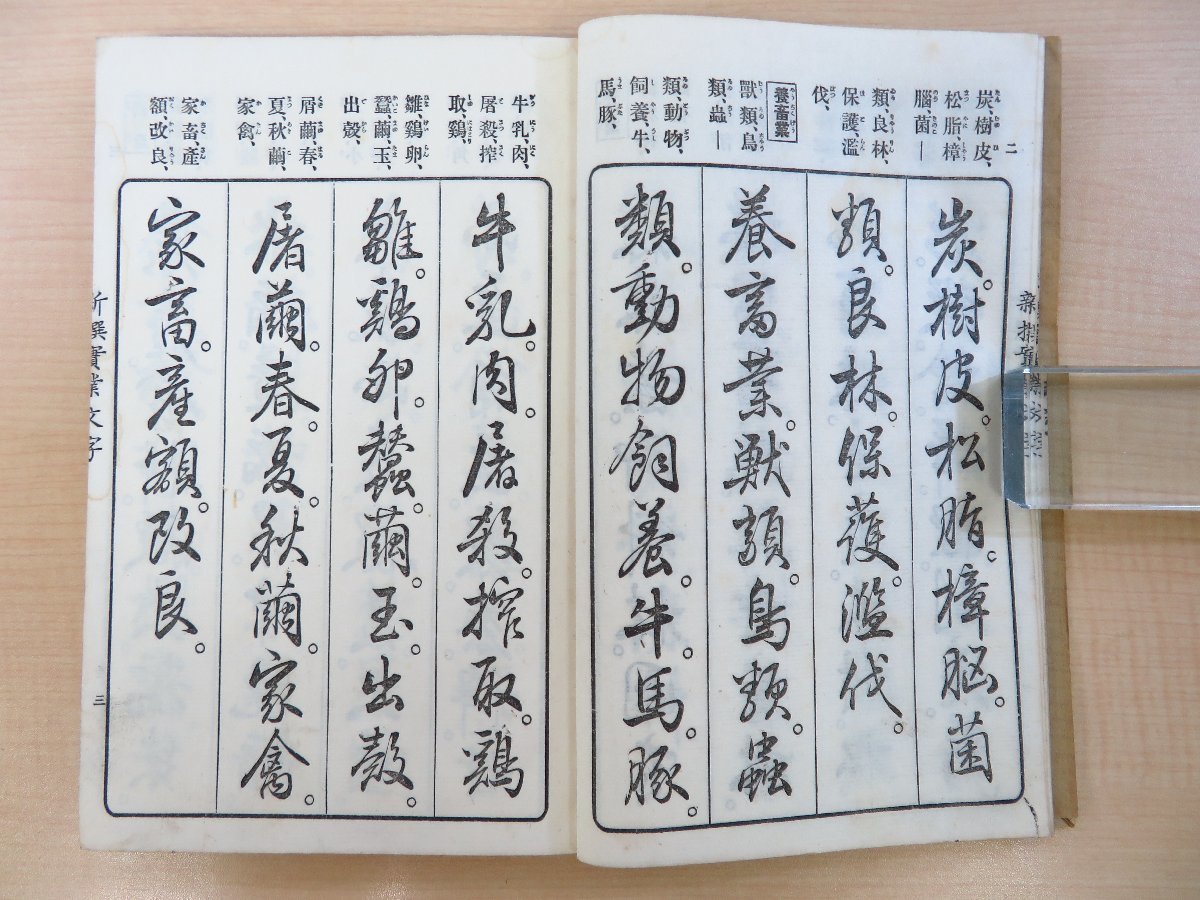 二
炭樹皮、
松脂樟
腦、菌―
類、良林、
保護、濫
伐、
養畜業
獸類、鳥
類、蟲―
類、動物、
飼養、牛、
馬、豚、
炭。樹皮。松脂。樟腦。菌
類。良林。保護。濫伐。
養畜業。獸類。鳥類。蟲
類。動物飼養。牛。馬。豚。
牛乳、肉、
屠殺、搾
取、鷄、
雛、鷄、卵、
蠶、繭、玉、
出殼、
屑繭、春、
夏、秋繭、
家禽、
家畜、產
額、改良、
牛乳。肉。屠殺。搾取。鷄
雛。鷄卵。蠶繭。玉。出殼。
屑繭。春。夏。秋繭。家禽。
家畜。產額。改良。
新撰實業文字
三